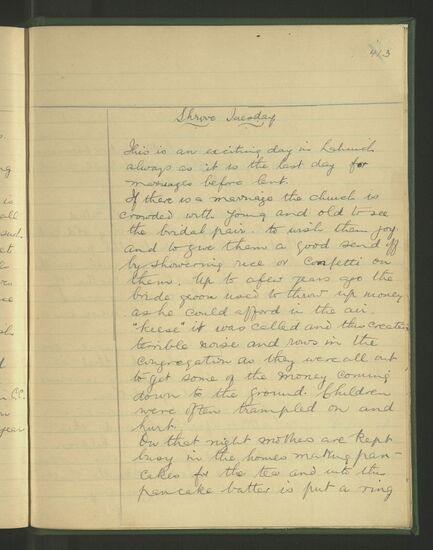 413
Shrove Tuesday
This is an exciting day in Lahinch
always as it is the last day for
marriages before lent.
If there is a marriage the church is
crowded with young and old to see
the bridal pair. to wish them joy
and to give them a good send off
by showering rice or confetti on
them. Up to a few years ago the
bride groom used to throw up money
as he could afford in the air.
it was called and this created
terrible noise and rows in the
congregation as they were all out
to get some of the money coming
down to the ground. Children
were often trampled on and
hurt.
On that night mothers are kept
busy in the homes making pan-
cakes for the tea and into the
pancake batter is put a ring